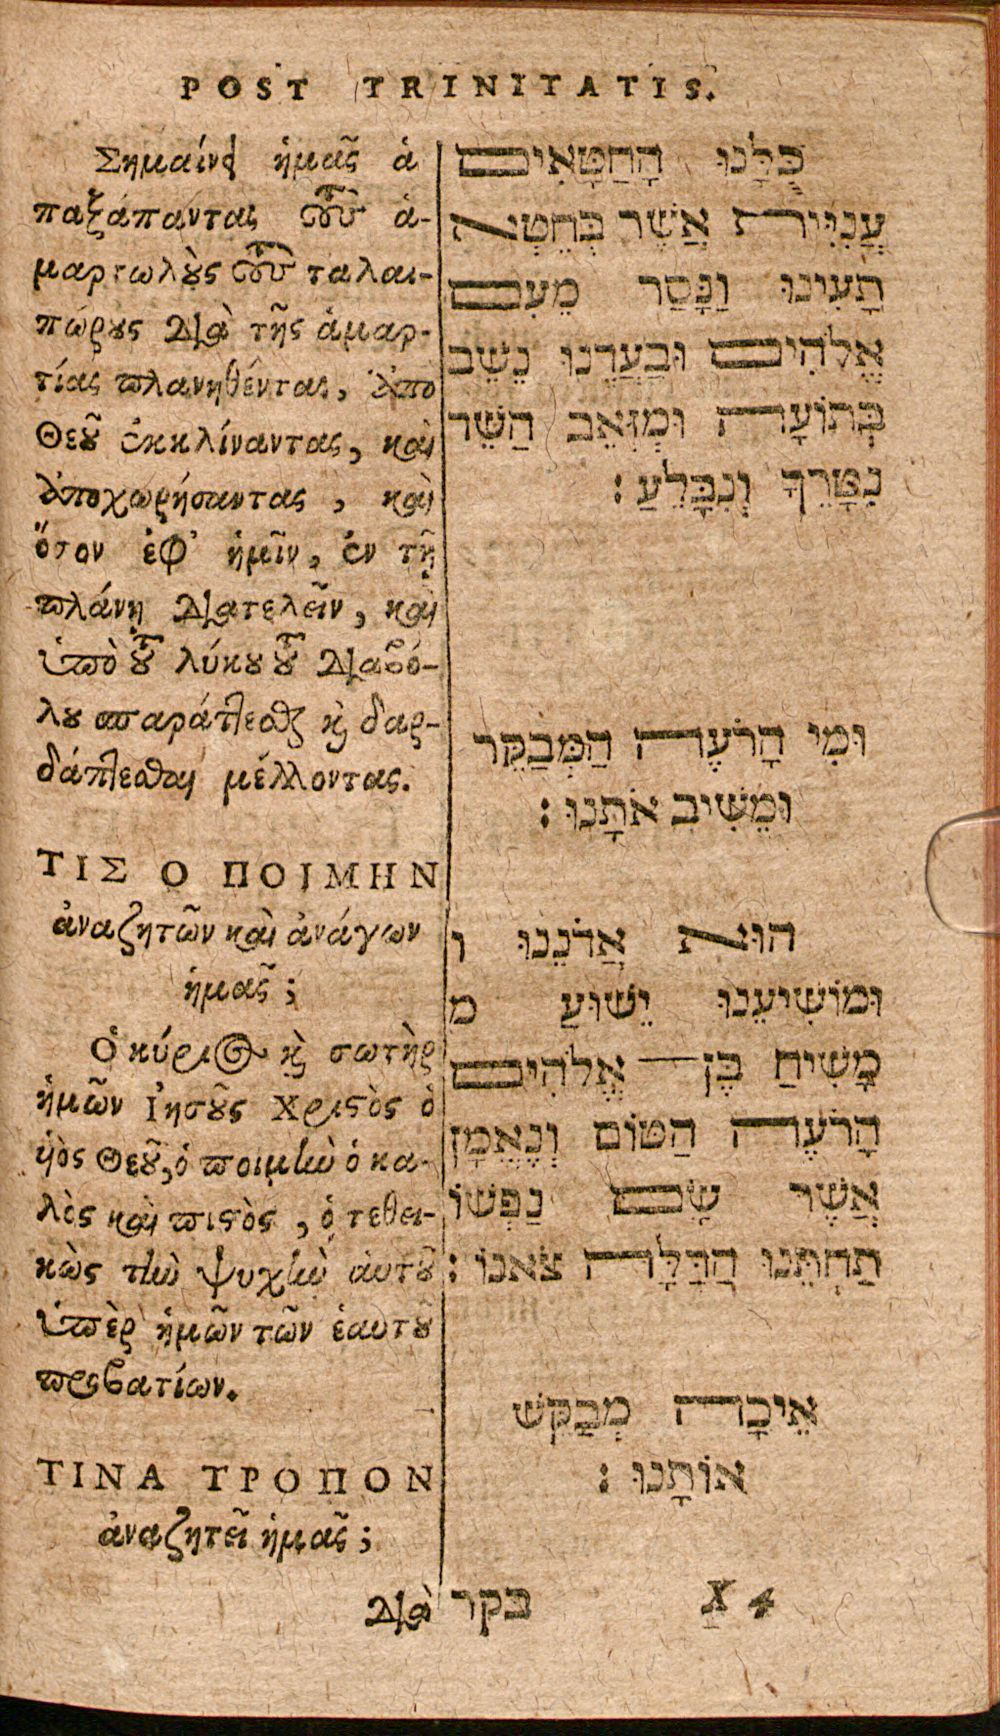 POST TRINITATIS.
Σημαίνει ἡμᾶς ἁ
παξάπαντας τοὺς ἁ-
μαρτωλοὺς τοὺς ταλαι-
πώρους διὰ τῆς ἁμαρ-
τίας πλανηθέντας, ἀπο
Θεοῦ ἐκκλίναντας, καὶ
ἀποχωρήσαντας, καὶ
ὅσον ἐφ' ἡμῖν, ἐν τῇ
πλάνῃ διατελεῖν, καὶ
ὑπὸ τοῦ λύκου τοῦ διαβό-
λου σπαράττεσθαι καὶ δαρ-
δάπτεσθαι μέλλοντας.
ΤΙΣ Ο ΠΟΙΜΗΝ
ἀναζητῶν καὶ ἀνάγων
ἡμᾶς;
Ὁ κύριος καὶ σωτὴρ
ἡμῶν Ἰησοῦς Χριστὸς ὁ
ὑιὸς Θεοῦ, ὁ ποιμὴν ὁ κα-
λὸς καὶ πιστὸς, ὁ τεθει-
κὼς τὴν ψυχὴν ἁυτοῦ
ὑπὲρ ἡμῶν τῶν ἑαυτοῦ
προβατίων.
ΤΙΝΑ ΤΡΟΠΟΝ
ἀναζητεῖ ἡμᾶς;
διὰ
כֻּלָּנוּ הָחַטָּאִים
עֲנִיִּיה אֲשֶׁר בְּחֵטְא
תָעִינוּ וַנָּסַר מֵעִם
אֱלֹהִים וּבַעֲדֵנוּ נֵשֵׁב
בְּתוֹעָה וּמִזְּאֵב הַשֵּׁד
נִטָּרֵף וְנִבָּלֵעַ׃
וּמִי הָרֹעֶה הַמְּבַקֵּר
וּמֵשִׁיב אֹתָנוּ׃
הוּא אֲדֹנֵנוּ ו
וּמוֹשִׁיעֵנוּ יֵשׁוּעַ מ
מָשִׁיחַ בֶּן אֱלֹהִים
הָרֹעֶה הַטּוֹם וְנֶאֱמָן
אֲשֶׁר שָׂם נַפְשׁוֹ
תַחְתֵּנוּ הֲדַלָּה צֹאנוֹ׃
אֵיכָה מְבַקֵּשׁ
אוֹתָנוּ׃
בקר
X 4